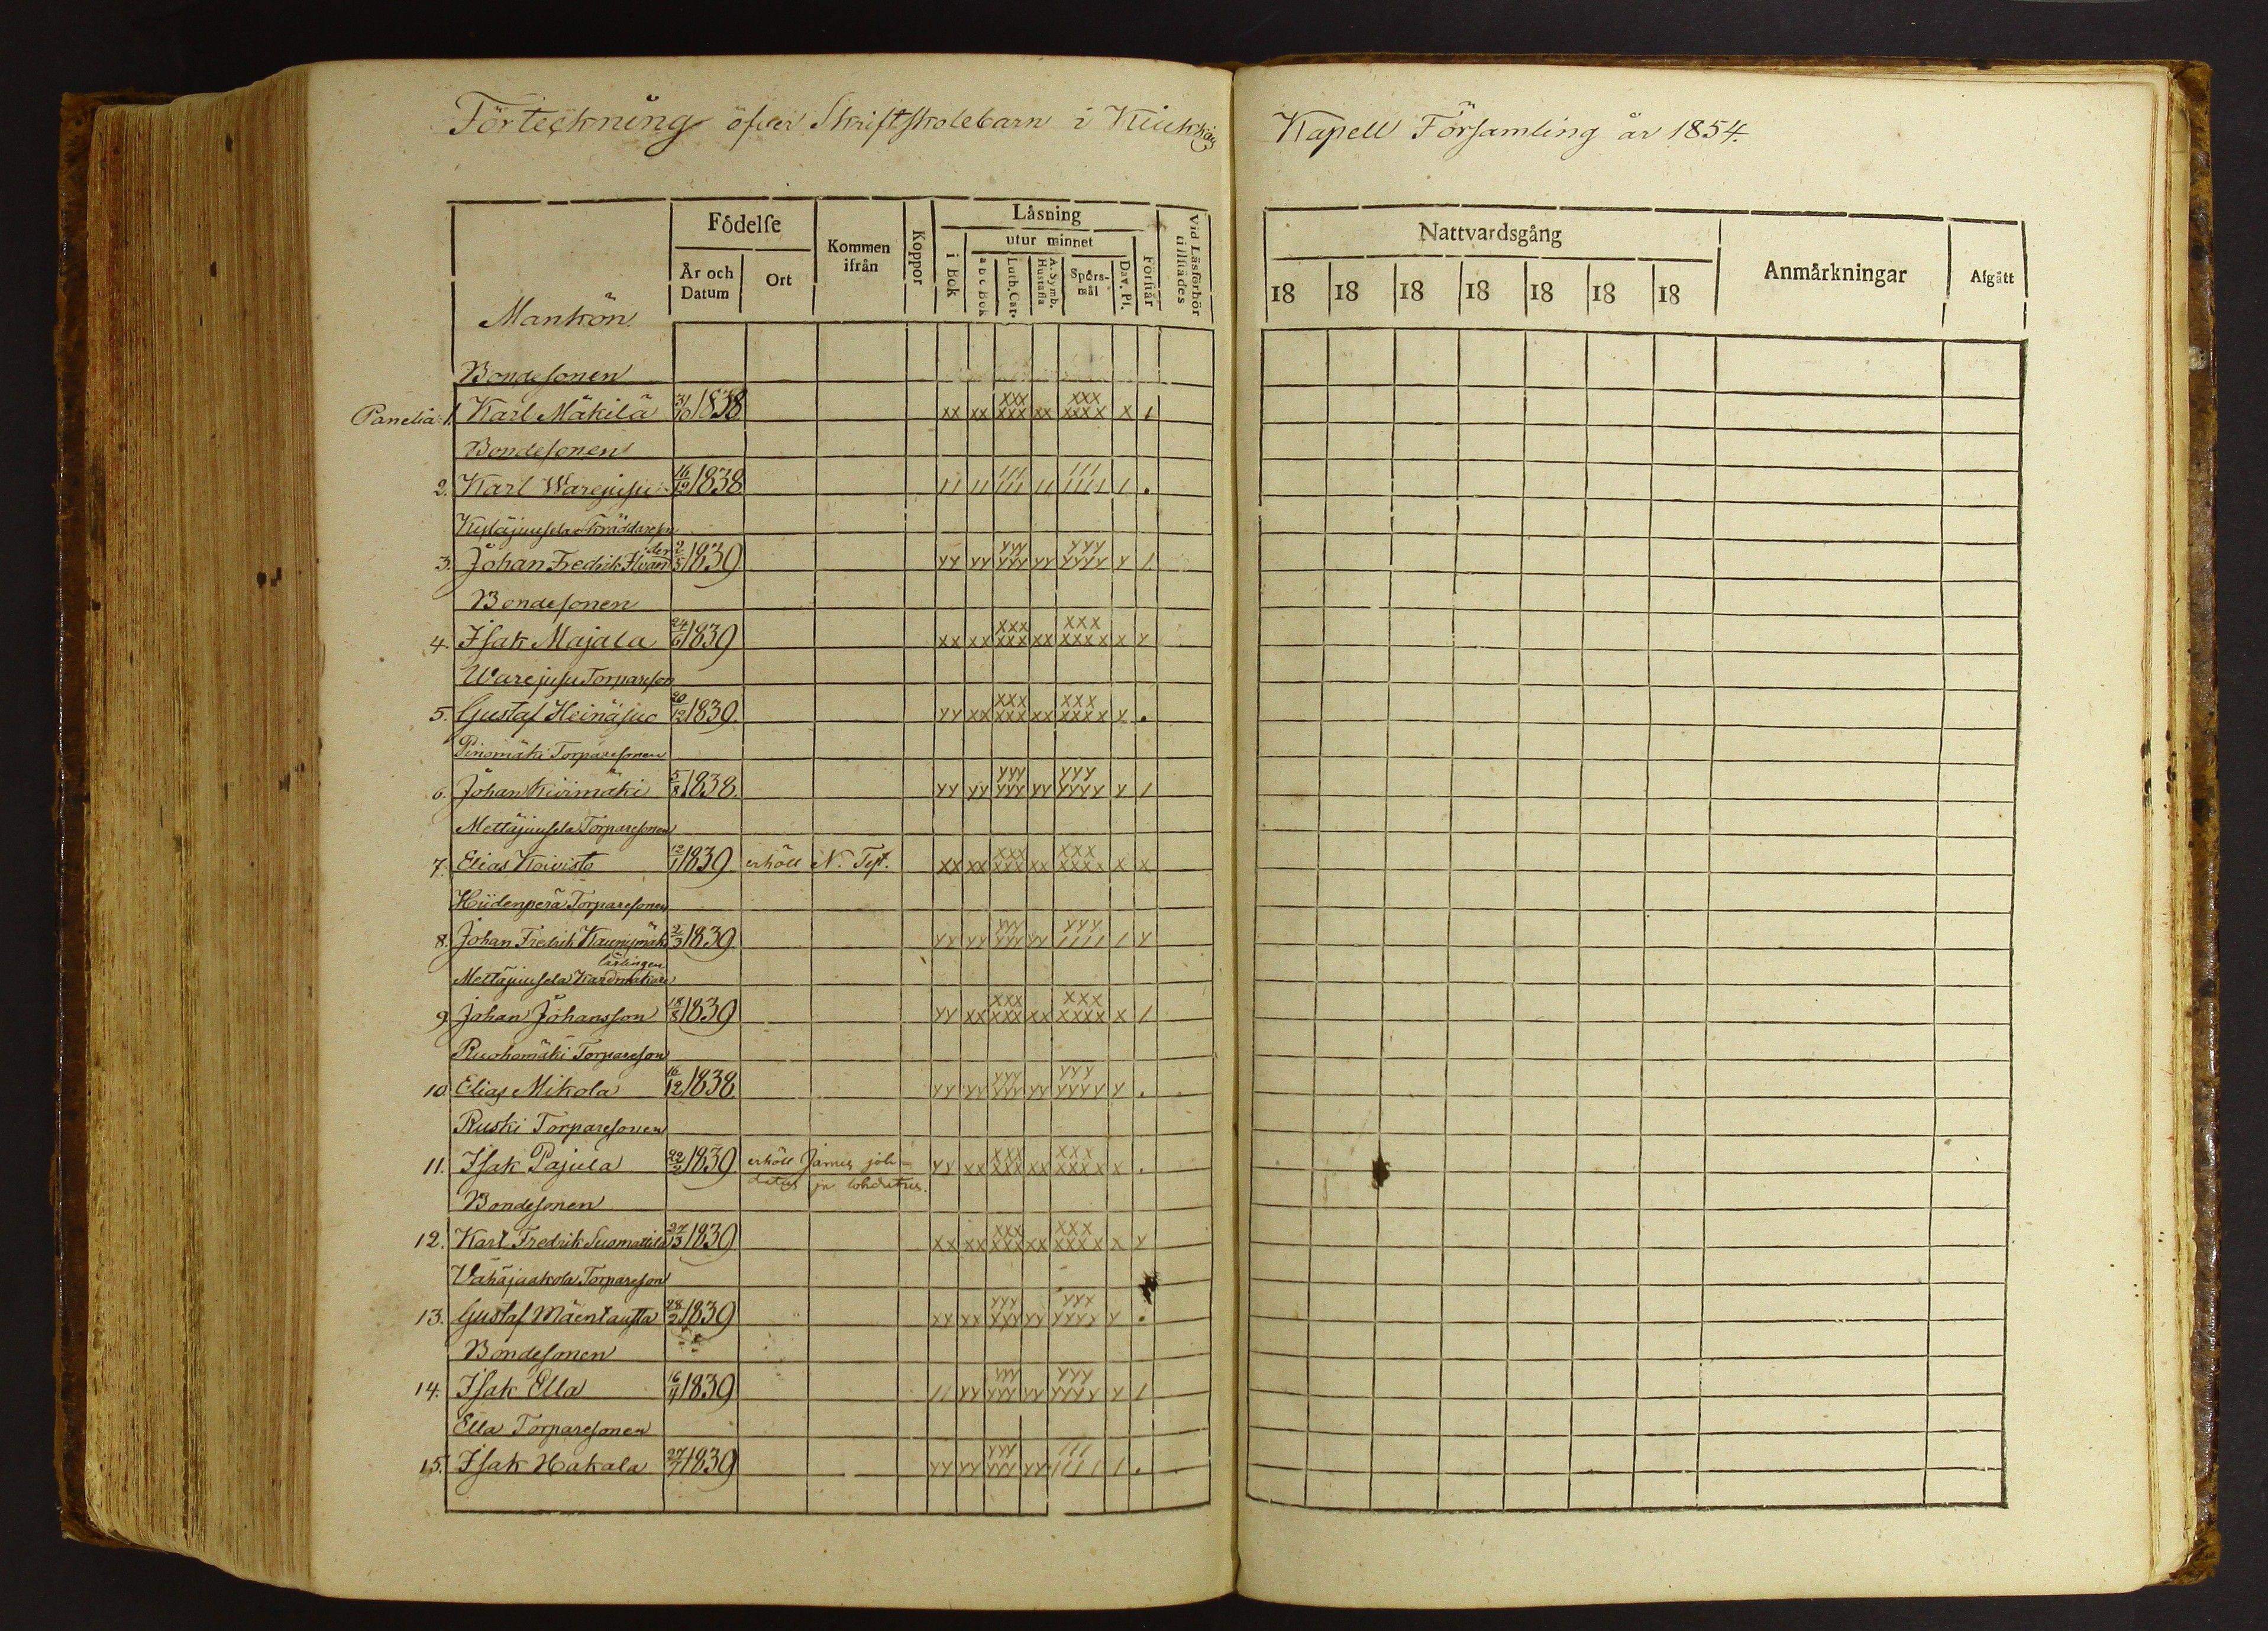 Förteckning öfver Skriftskolebarn i Kiukkais Kapell Församling år 1854.
Födelse
Kommen ifrån
Koppor
Läsning
Vid Läsförhör tillstädes
Nattvardsgång
Anmärkningar
Afgått
År och Datum
Ort
i Bok
utur minnet
a b c Bok
Luth. Cat.
A. Symb. Hustafla
Spörsmål
Dav. Ps.
Förstår
18 18 18 18 18 18 18
Mankön
Bondesonen
Panelia 1. Karl Mäkilä 31/10 1838 xx xx xxx xxx xx xxx xxxx x /
Bondesonen
2. Karl Warejusu 16/12 1838 // // /// /// // /// //// / .
Kyläjuusela Skräddareson
3. Johan Fredrik Floander 2/5 1839 yy yy yyy yyy yy yyy yyyy y /
Bondesonen
4. Isak Majala 24/6 1839 xx xx xxx xxx xx xxx xxxx x y
Warejusu Torpareson
5. Gustaf Heinäsuo 20/12 1839. yy xx xxx xxx xx xxx xxxx y .
Pinomäki Torparesonen
6. Johan Kivimäki 5/8 1838. yy yy yyy yyy yy yyy yyyy y /
Mettäjuusela Torparesonen
7. Elias Koivisto 12/1 1839 erhöll N. Test. xx xx xxx xxx xx xxx xxxx x x
Hiidenperä Torparesonen
8. Johan Fredrik Kaunismäki 2/3 1839 yy yy yyy yyy yy yyy //// / y
Mettäjuusela Kardmakare lärlingen
9. Johan Johansson 18/8 1839 yy xx xxx xxx xx xxx xxxx x /
Ruohomäki Torpareson
10. Elias Mikola 16/12 1838. yy yy yyy yyy yy yyy yyyy y .
Ruski Torparesonen
11. Isak Pajula 22/2 1839 erhöll James joh-
datus ja lohdutus. yy xx xxx xxx xx xxx xxxx x .
Bondesonen
12. Karl Fredrik Suomattila 27/3 1839 xx xx xxx xxx xx xxx xxxx x y
Vähäjaakola Torpareson
13. Gustaf Mäentausta 28/2 1839 xy xx yyy xyy yy yyx yyyy y .
Bondesonen
14. Isak Ella 16/4 1839 // yy yyy yyy yy yyy yyyy y /
Ella Torparesonen
15. Isak Hakala 27/7 1839 yy yy yyy yyy yy /// //// / .